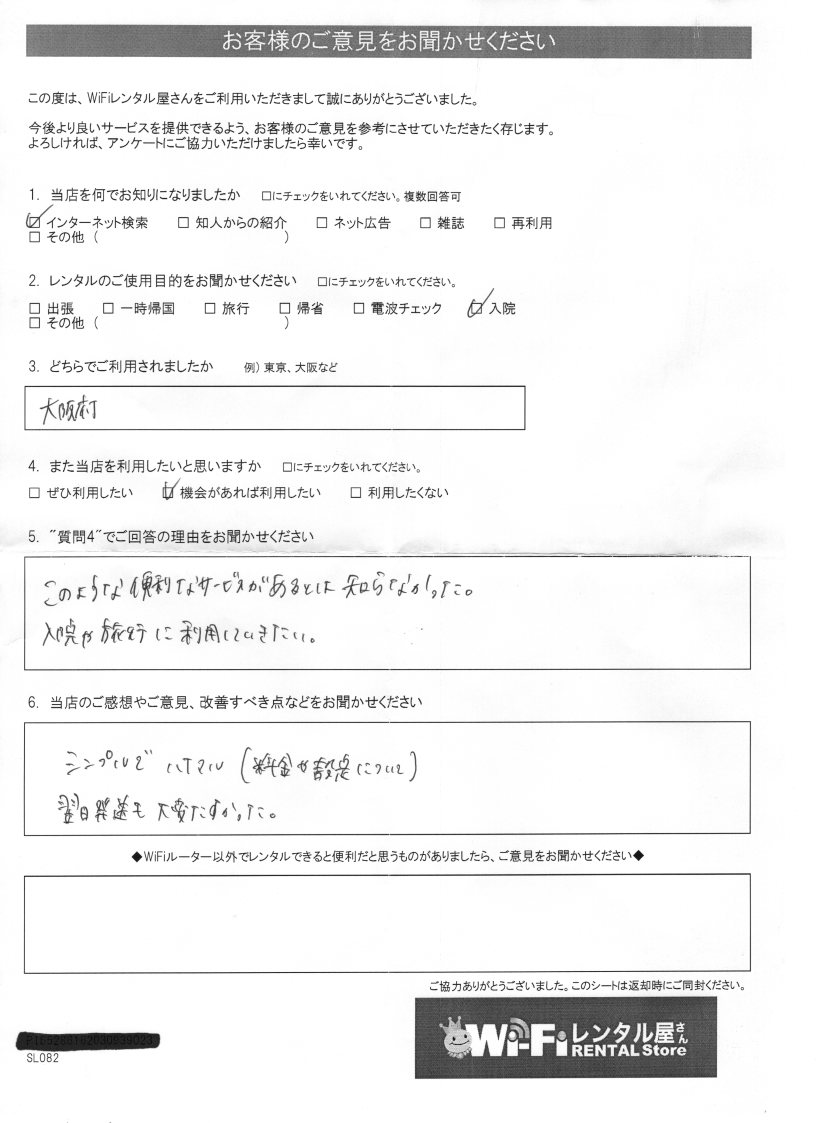 お客様のご意見をお聞かせください
この度は、WiFiレンタル屋さんをご利用いただきまして誠にありがとうございました。
今後より良いサービスを提供できるよう、お客様のご意見を参考にさせていただきたく存じます。
よろしければ、アンケートにご協力いただけましたら幸いです。
1. 当店を何でお知りになりましたか □にチェックをいれてください。複数回答可
☑ インターネット検索 □ 知人からの紹介 □ ネット広告 □ 雑誌 □ 再利用
□ その他 ( )
2. レンタルのご使用目的をお聞かせください □にチェックをいれてください。
□ 出張 □ 一時帰国 □ 旅行 □ 帰省 □ 電波チェック ☑ 入院
□ その他 ( )
3. どちらでご利用されましたか 例) 東京、大阪など
大阪府
4. また当店を利用したいと思いますか □にチェックをいれてください。
□ ぜひ利用したい ☑ 機会があれば利用したい □ 利用したくない
5. "質問4"でご回答の理由をお聞かせください
このような便利なサービスがあるとは知らなかった。
入院や旅行に利用していきたい。
6. 当店のご感想やご意見、改善すべき点などをお聞かせください
シンプルで (料金や について)
翌日発送も大変たすかった。
◆WiFiルーター以外でレンタルできると便利だと思うものがありましたら、ご意見をお聞かせください◆
ご協力ありがとうございました。このシートは返却時にご同封ください。
Wi-Fiレンタル屋さん
RENTAL Store
SL082